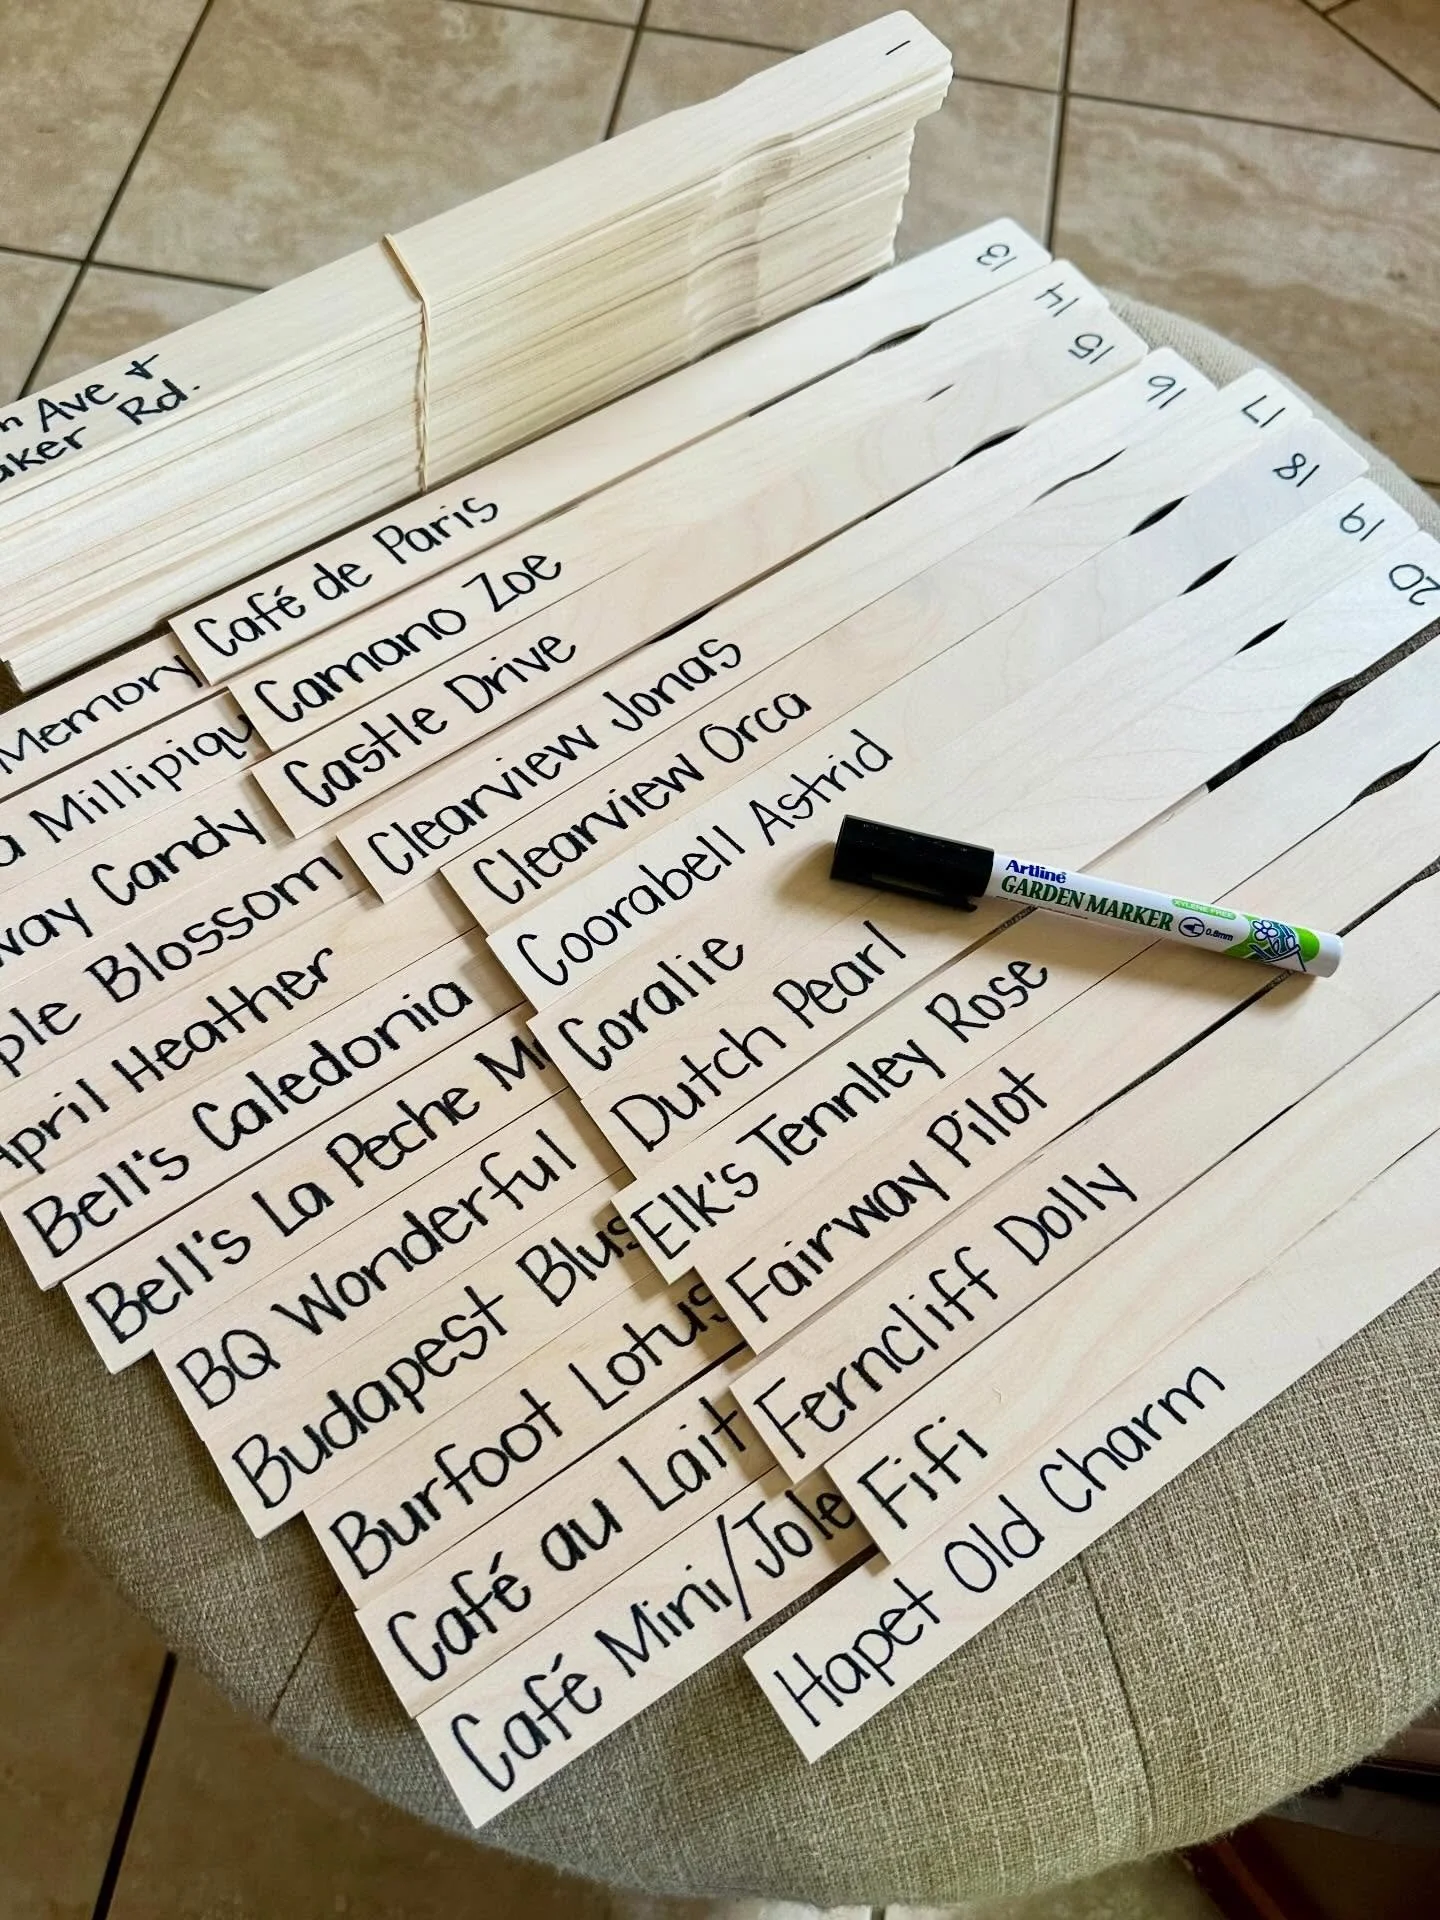 1
Ave &
Rd.
13
14
15
16
17
18
19
20
Café de Paris
Camano Zoe
Castle Drive
Clearview Jonas
Clearview Orca
Coorabell Astrid
Coralie
Dutch Pearl
Elk's Tennley Rose
Fairway Pilot
Ferncliff Dolly
Fifi
Hapet Old Charm
Memory
Millipiqu
way Candy
ple Blossom
April Heather
Bell's Caledonia
Bell's La Peche M
BQ Wonderful
Budapest Blus
Burfoot Lotus
Café au Lait
Café Mini/Jole
Artline
GARDEN MARKER
XYLENE FREE
0.8mm